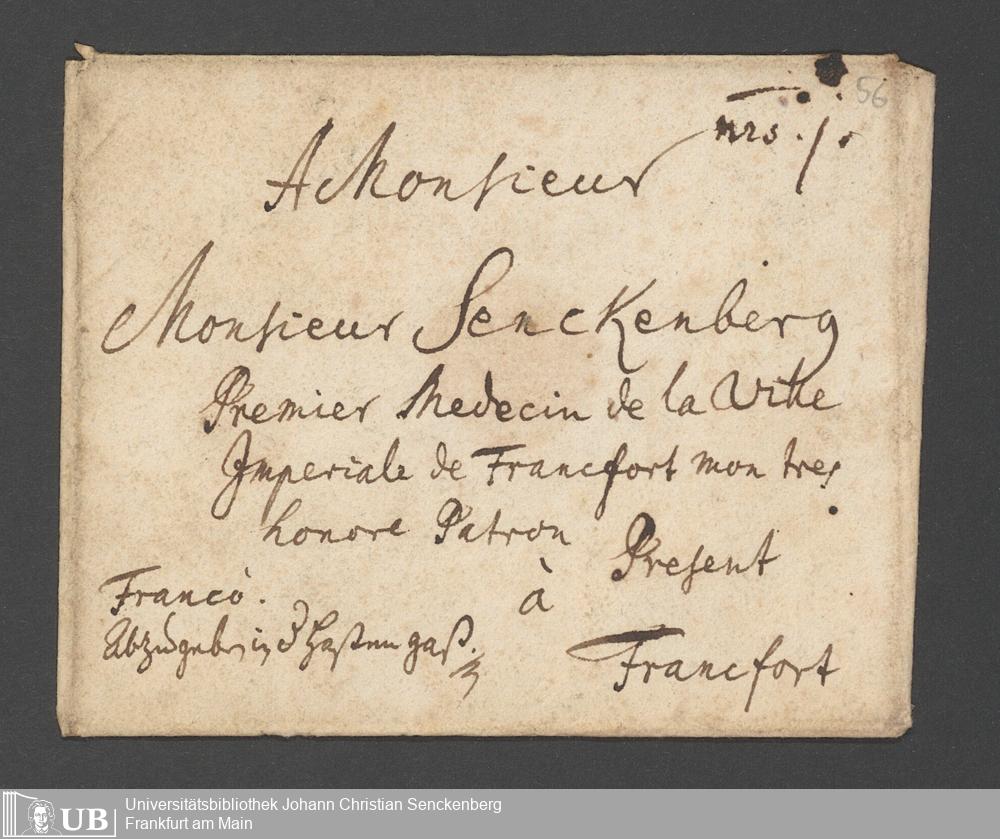 56
A Monsieur
Monsieur Senckenberg
Premier Medecin de la Ville
Imperiale de Francfort mon tres
honore Patron
Present
Franco.
à
Abzugeben in d Hasen gaß.
Francfort
UB
Universitätsbibliothek Johann Christian Senckenberg
Frankfurt am Main